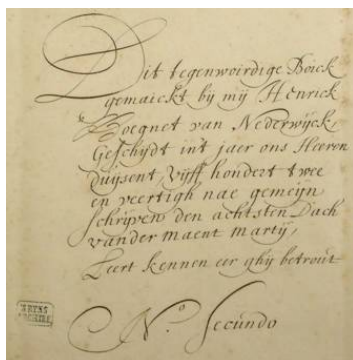 Dit tegenwoirdige Boick
gemaickt bij mij Henrick
Hoegnet van Nederwijck,
Geschydt int jaer ons Heeren
duÿsent, Vijff hondert twee
en veertigh nae gemeijn
schrijven den achtsten Dach
vander maent martij,
Leert kennen eer ghij betrout
N.º Secúndo